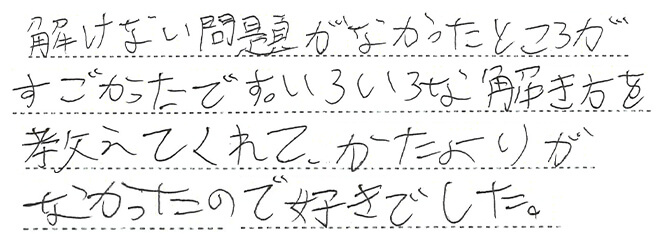 解けない問題がなかったところが
すごかったです。いろいろな解き方を
教えてくれて、かたよりが
なかったので好きでした。